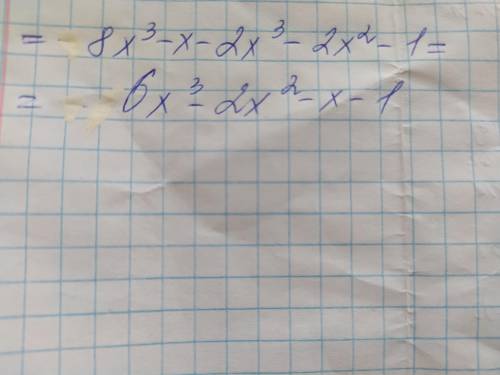 = 8x³-x-2x³-2x²-1=
= 6x³-2x²-x-1